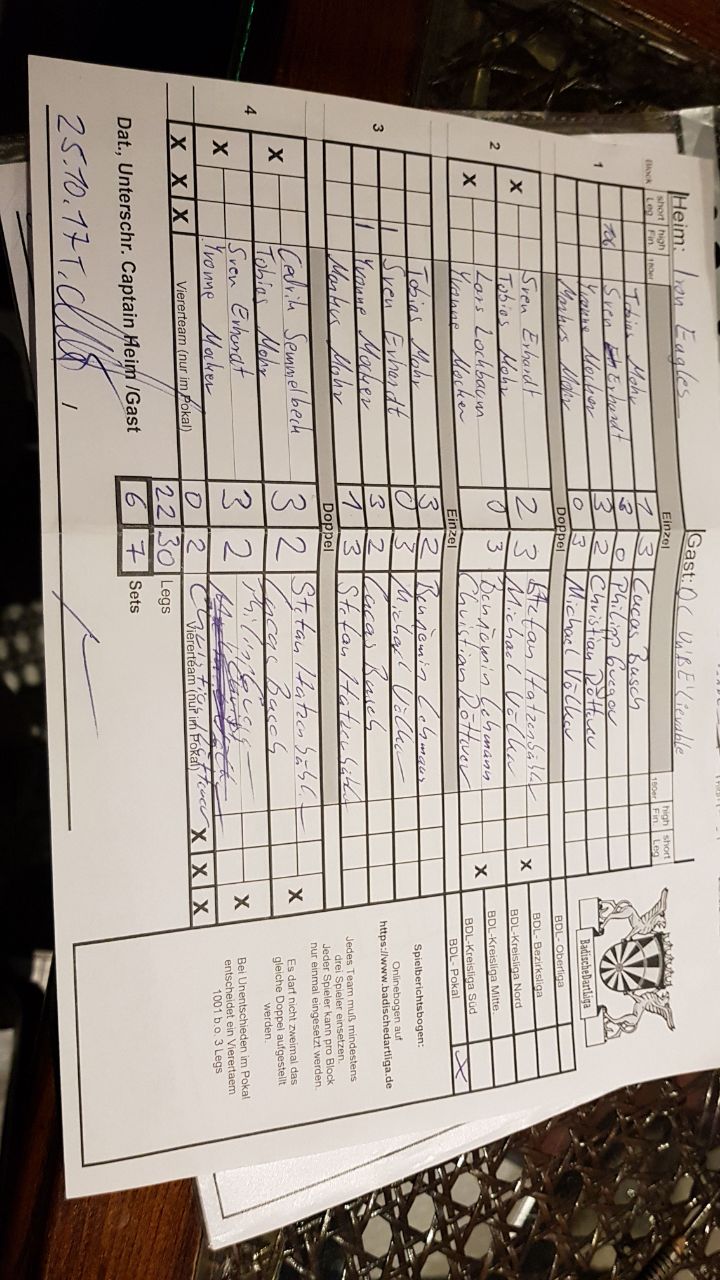 Heim: Iron Eagles
Gast: DC UnBElievable
Block short Leg high Fin. 180er Einzel 180er high Fin. short Leg
1
Tobias Mohr 1 3 Lucas Busch
106 Sven Erhardt 3 0 Philipp
Yvonne Macher 3 2 Christian Röttner
Markus Mohr 0 3 Michael Völker
Doppel
2
X Sven Erhardt 2 3 Stefan Hatzenbühler X
Tobias Mohr Michael Völker
X Lars Lochbaum 0 3 Benjamin Lehmann X
Yvonne Macher Christian Röttner
Einzel
3
Tobias Mohr 3 2 Benjamin Lehmann
1 Sven Erhardt 0 3 Michael Völker
1 Yvonne Macher 3 2 Lucas Busch
Markus Mohr 1 3 Stefan Hatzenbühler
Doppel
4
X Cedrik Semmelbeck 3 2 Stefan Hatzenbühler X
Tobias Mohr Lucas Busch
X Sven Erhardt 3 2 Philipp X
Yvonne Macher Christian Röttner
X X X Viererteam (nur im Pokal) 0 2 Viererteam (nur im Pokal) X X X
22 30 Legs
6 7 Sets
Dat., Unterschr. Captain Heim /Gast
25.10.17 T.
/
BadischeDartLiga
BDL- Oberliga
BDL- Bezirksliga
BDL-Kreisliga Nord
BDL-Kreisliga Mitte
BDL-Kreisliga Süd
BDL- Pokal X
Spielberichtsbogen:
Onlinebogen auf
https://www.badischedartliga.de
Jedes Team muß mindestens
drei Spieler einsetzen.
Jeder Spieler kann pro Block
nur einmal eingesetzt werden.
Es darf nicht zweimal das
gleiche Doppel aufgestellt
werden.
Bei Unentschieden im Pokal
entscheidet ein Viererteam
1001 b.o. 3 Legs